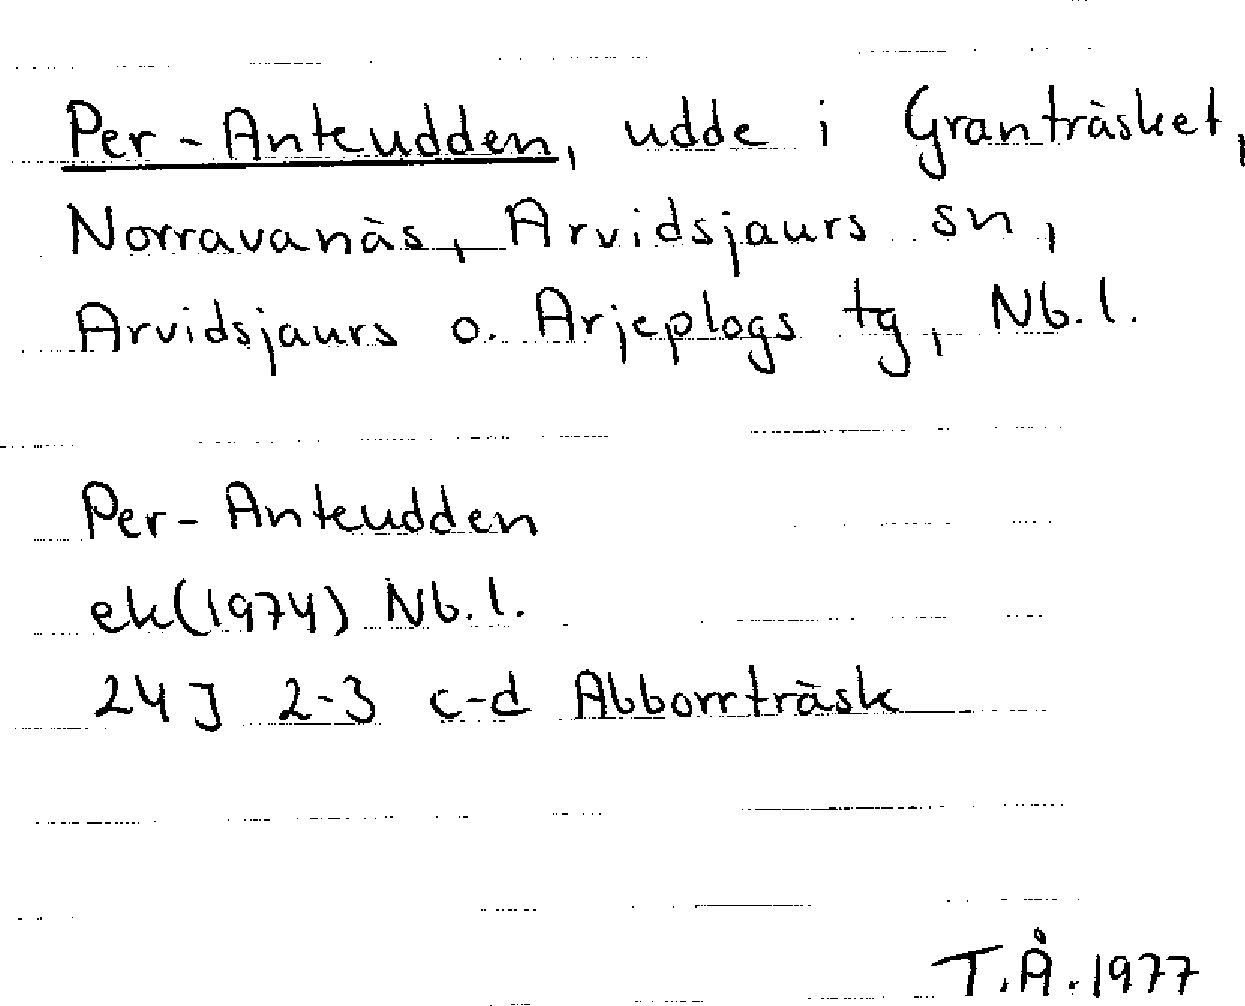 Per-Anteudden, udde i Granträsket,
Norravanäs, Arvidsjaurs sn,
Arvidsjaurs o. Arjeplogs tg, Nb.l.
Per-Anteudden
ek(1974) Nb.l.
24J 2-3 c-d Abborrträsk
T.Å.1977